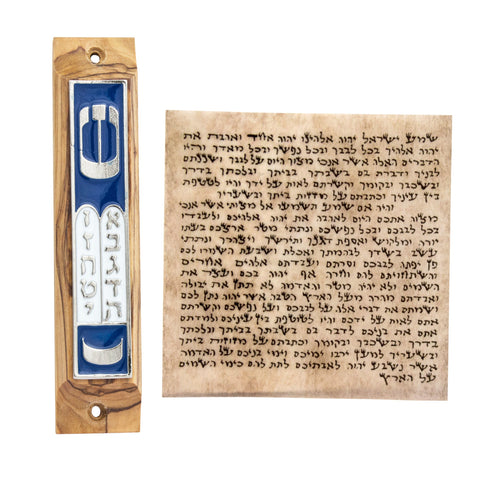 ש
א ו
ב ז
ג ח
ד ט
ה י
שמע ישראל יהוה אלהינו יהוה אחד ואהבת את
יהוה אלהיך בכל לבבך ובכל נפשך ובכל מאדך והיו
הדברים האלה אשר אנכי מצוך היום על לבבך ושננתם
לבניך ודברת בם בשבתך בביתך ובלכתך בדרך
ובשכבך ובקומך וקשרתם לאות על ידך והיו לטטפת
בין עיניך וכתבתם על מזזות ביתך ובשעריך
והיה אם שמע תשמעו אל מצותי אשר אנכי
מצוה אתכם היום לאהבה את יהוה אלהיכם ולעבדו
בכל לבבכם ובכל נפשכם ונתתי מטר ארצכם בעתו
יורה ומלקוש ואספת דגנך ותירשך ויצהרך ונתתי
עשב בשדך לבהמתך ואכלת ושבעת השמרו לכם
פן יפתה לבבכם וסרתם ועבדתם אלהים אחרים
והשתחויתם להם וחרה אף יהוה בכם ועצר את
השמים ולא יהיה מטר והאדמה לא תתן את יבולה
ואבדתם מהרה מעל הארץ הטבה אשר יהוה נתן לכם
ושמתם את דברי אלה על לבבכם ועל נפשכם וקשרתם
אתם לאות על ידכם והיו לטוטפת בין עיניכם ולמדתם
אתם את בניכם לדבר בם בשבתך בביתך ובלכתך
בדרך ובשכבך ובקומך וכתבתם על מזוזות ביתך
ובשעריך למען ירבו ימיכם וימי בניכם על האדמה
אשר נשבע יהוה לאבתיכם לתת להם כימי השמים
על הארץ